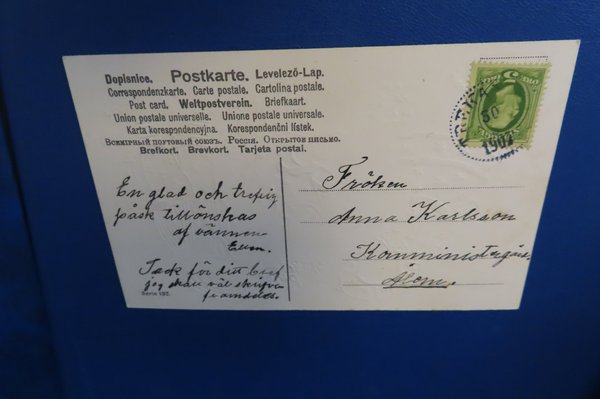 Dopisnice. Postkarte. Levelező-Lap.
Correspondenzkarte. Carte postale. Cartolina postale.
Post card. Weltpostverein. Briefkaart.
Union postale universelle. Unione postale universale.
Karta korrespondencyjna. Korespondenční lístek.
Всемірный почтовый союзъ. Россія. Открытое письмо.
Brefkort. Brevkort. Tarjeta postal.
En glad och trefvlig
påsk tillönskas
af vännen
Ellen.
Tack för ditt bref
jag skall väl skrifva
framdeles.
Serie 192.
Fröken
Anna Karlsson
Komministergård
1907